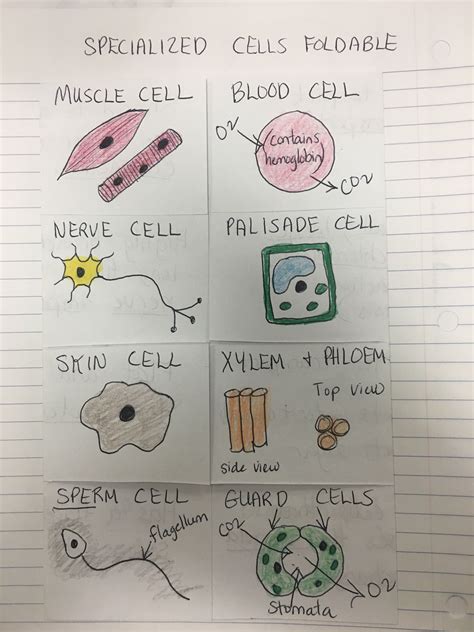 SPECIALIZED CELLS FOLDABLE
MUSCLE CELL
BLOOD CELL
O2
(contains
hemoglobin)
CO2
NERVE CELL
PALISADE CELL
SKIN CELL
XYLEM & PHLOEM
Top View
side view
SPERM CELL
flagellum
GUARD CELLS
CO2
O2
Stomata